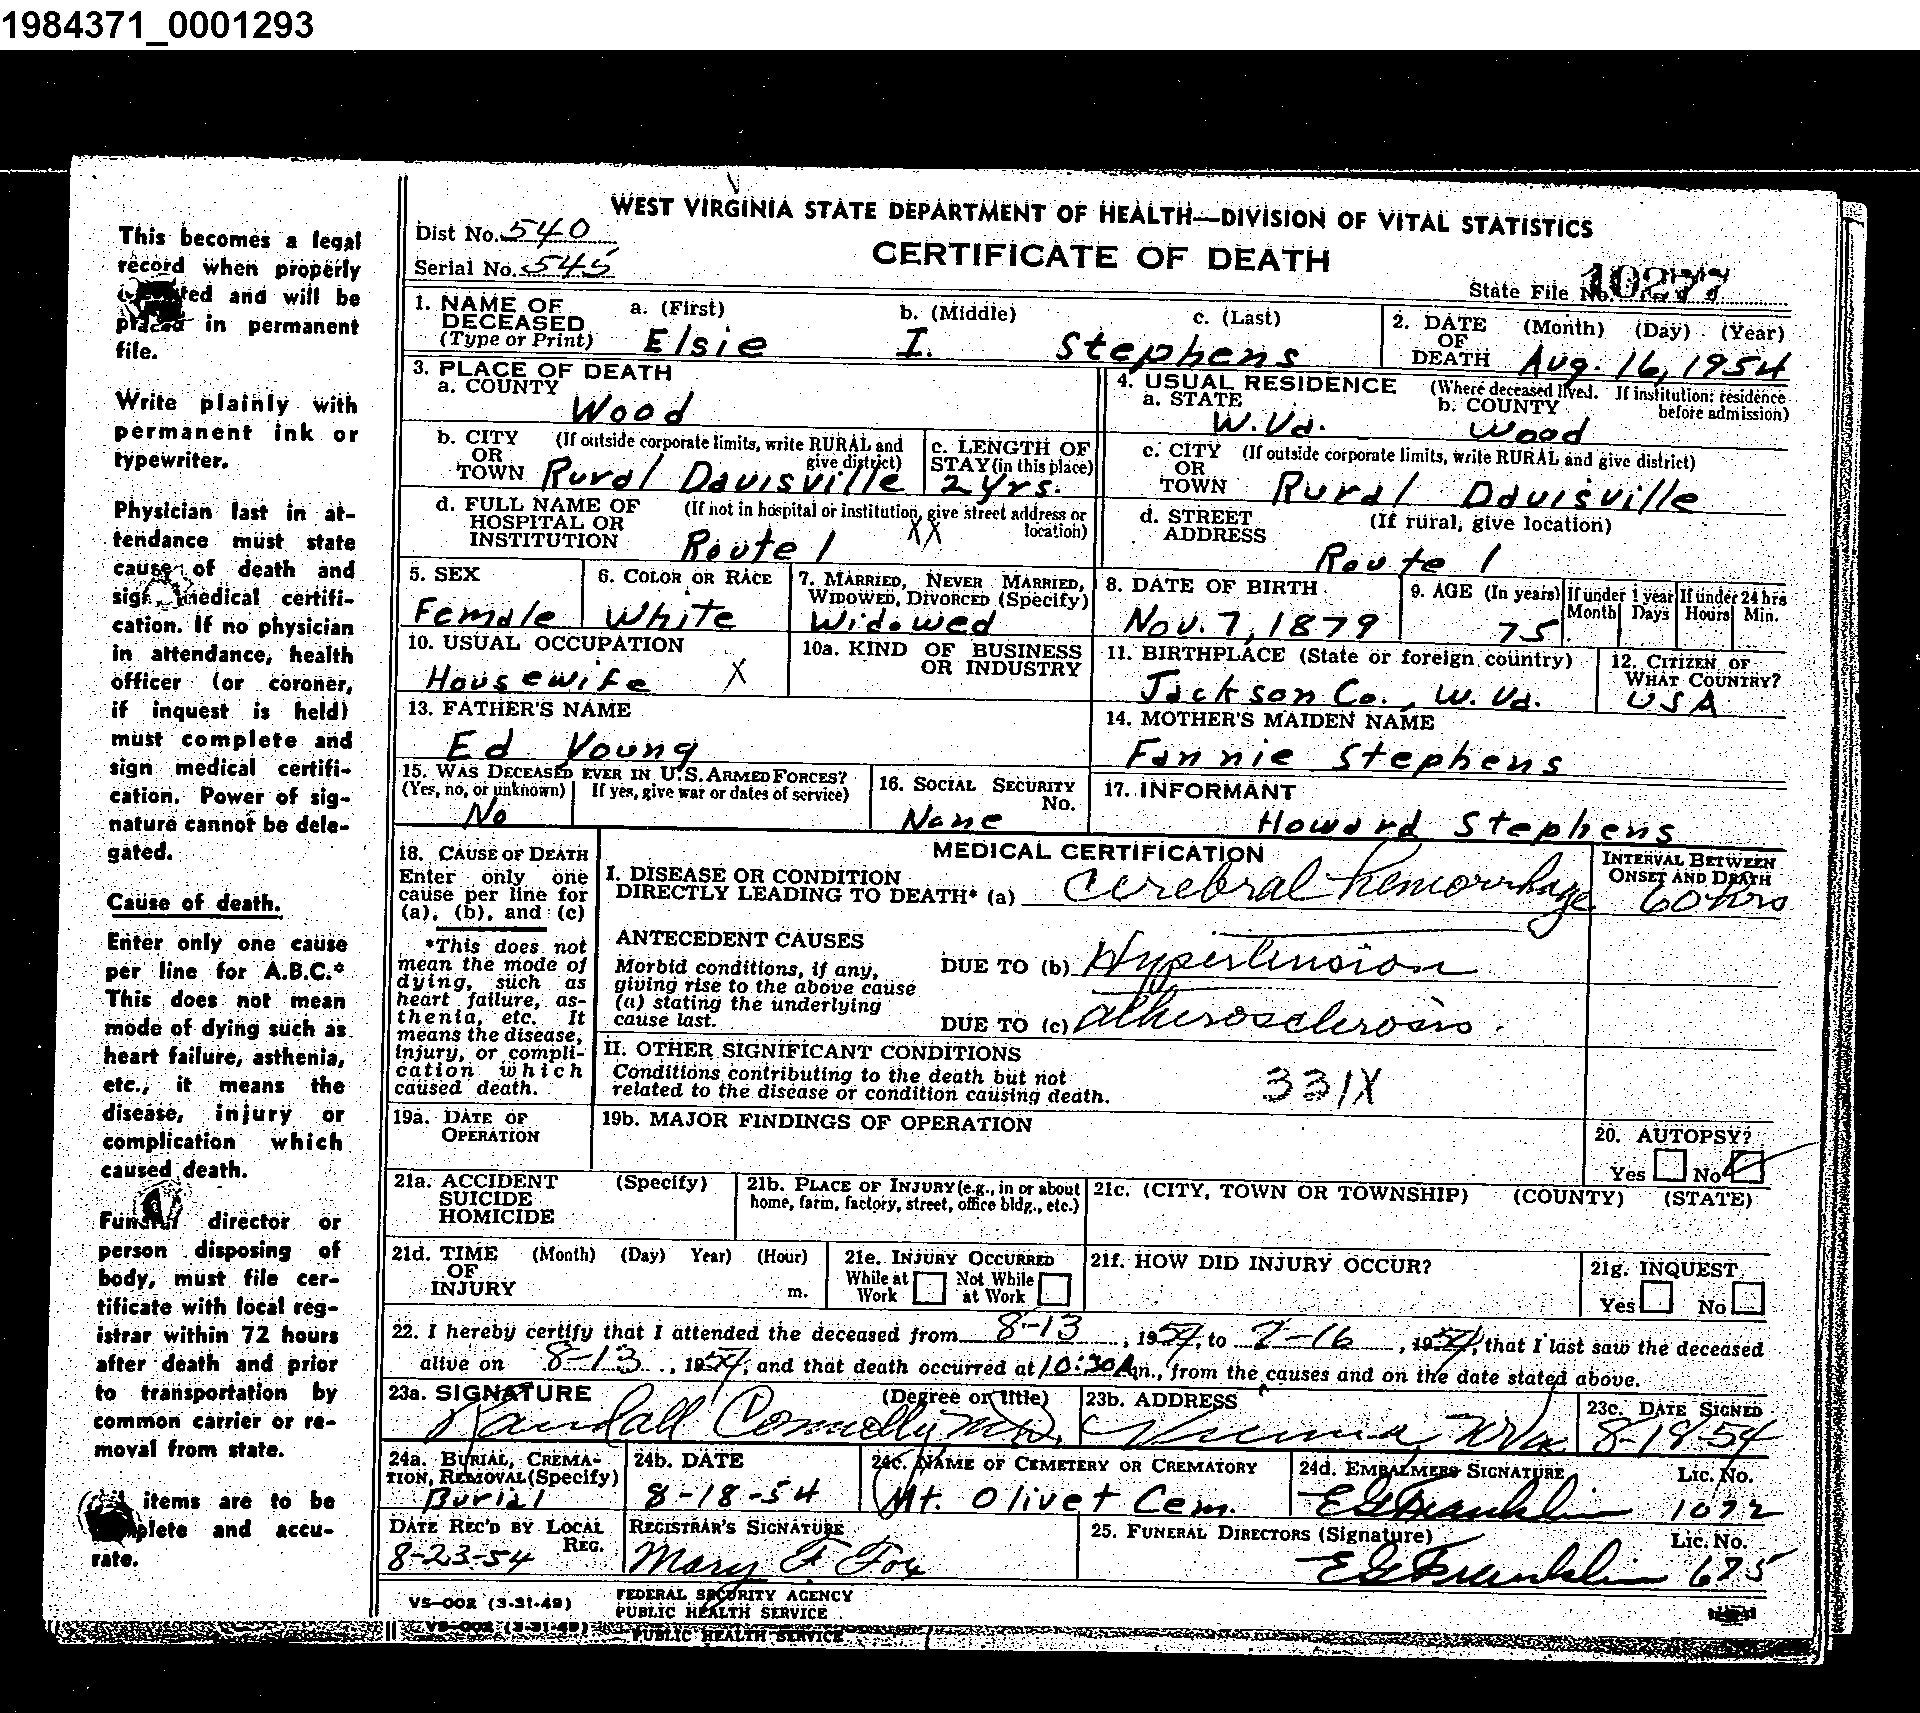 1984371_0001293
This becomes a legal
record when properly
and will be
placed in permanent
file.
Write plainly with
permanent ink or
typewriter.
Physician last in at-
tendance must state
cause of death and
sign medical certifi-
cation. If no physician
in attendance, health
officer (or coroner,
if inquest is held)
must complete and
sign medical certifi-
cation. Power of sig-
nature cannot be dele-
gated.
Cause of death.
Enter only one cause
per line for A.B.C.*
This does not mean
mode of dying such as
heart failure, asthenia,
etc., it means the
disease, injury or
complication which
caused death.
Funeral director or
person disposing of
body, must file cer-
tificate with local reg-
istrar within 72 hours
after death and prior
to transportation by
common carrier or re-
moval from state.
items are to be
and accu-
rate.
WEST VIRGINIA STATE DEPARTMENT OF HEALTH—DIVISION OF VITAL STATISTICS
Dist No. 540
CERTIFICATE OF DEATH
Serial No. 545
State File No. 10277
1. NAME OF DECEASED (Type or Print) a. (First) b. (Middle) c. (Last)
Elsie I. Stephens
2. DATE OF DEATH (Month) (Day) (Year)
Aug. 16, 1954
3. PLACE OF DEATH
a. COUNTY
Wood
4. USUAL RESIDENCE (Where deceased lived. If institution: residence before admission)
a. STATE b. COUNTY
W.Va. Wood
b. CITY OR TOWN (If outside corporate limits, write RURAL and give district)
Rural Davisville
c. LENGTH OF STAY (in this place)
2 Yrs.
c. CITY OR TOWN (If outside corporate limits, write RURAL and give district)
Rural Davisville
d. FULL NAME OF HOSPITAL OR INSTITUTION (If not in hospital or institution, give street address or location)
Route 1 XX
d. STREET ADDRESS (If rural, give location)
Route 1
5. SEX
Female
6. COLOR OR RACE
White
7. MARRIED, NEVER MARRIED, WIDOWED, DIVORCED (Specify)
Widowed
8. DATE OF BIRTH
Nov. 7, 1879
9. AGE (In years) If under 1 year If under 24 hrs
Month Days Hours Min.
75
10. USUAL OCCUPATION
Housewife X
10a. KIND OF BUSINESS OR INDUSTRY
11. BIRTHPLACE (State or foreign country)
Jackson Co., W. Va.
12. CITIZEN OF WHAT COUNTRY?
USA
13. FATHER'S NAME
Ed Young
14. MOTHER'S MAIDEN NAME
Fannie Stephens
15. WAS DECEASED EVER IN U.S. ARMED FORCES?
(Yes, no, or unknown) If yes, give war or dates of service)
No
16. SOCIAL SECURITY No.
None
17. INFORMANT
Howard Stephens
18. CAUSE OF DEATH
Enter only one
cause per line for
(a), (b), and (c)
*This does not
mean the mode of
dying, such as
heart failure, as-
thenia, etc. It
means the disease,
injury, or compli-
cation which
caused death.
MEDICAL CERTIFICATION
INTERVAL BETWEEN ONSET AND DEATH
I. DISEASE OR CONDITION
DIRECTLY LEADING TO DEATH* (a) Cerebral hemorrhage 60 hrs
ANTECEDENT CAUSES
Morbid conditions, if any,
giving rise to the above cause
(a) stating the underlying
cause last.
DUE TO (b) Hypertension
DUE TO (c) atherosclerosis.
II. OTHER SIGNIFICANT CONDITIONS
Conditions contributing to the death but not
related to the disease or condition causing death.
331X
19a. DATE OF OPERATION
19b. MAJOR FINDINGS OF OPERATION
20. AUTOPSY?
Yes No
21a. ACCIDENT SUICIDE HOMICIDE (Specify)
21b. PLACE OF INJURY (e.g., in or about home, farm, factory, street, office bldg., etc.)
21c. (CITY, TOWN OR TOWNSHIP) (COUNTY) (STATE)
21d. TIME OF INJURY (Month) (Day) Year) (Hour) m.
21e. INJURY OCCURRED
While at Work Not While at Work
21f. HOW DID INJURY OCCUR?
21g. INQUEST
Yes No
22. I hereby certify that I attended the deceased from 8-13, 1954, to 8-16, 1954, that I last saw the deceased
alive on 8-13, 1954, and that death occurred at 10:30 A m., from the causes and on the date stated above.
23a. SIGNATURE (Degree or title)
Randall Connolly M.D.
23b. ADDRESS
Vienna, W Va
23c. DATE SIGNED
8-18-54
24a. BURIAL, CREMATION, REMOVAL (Specify)
Burial
24b. DATE
8-18-54
24c. NAME OF CEMETERY OR CREMATORY
Mt. Olivet Cem.
24d. EMBALMERS SIGNATURE Lic. No.
E G Franklin 1072
DATE REC'D BY LOCAL REG.
8-23-54
REGISTRAR'S SIGNATURE
Mary F. Fox
25. FUNERAL DIRECTORS (Signature) Lic. No.
E G Franklin 675
VS-002 (3-31-49)
FEDERAL SECURITY AGENCY
PUBLIC HEALTH SERVICE
VS-002 (3-31-49)
PUBLIC HEALTH SERVICE